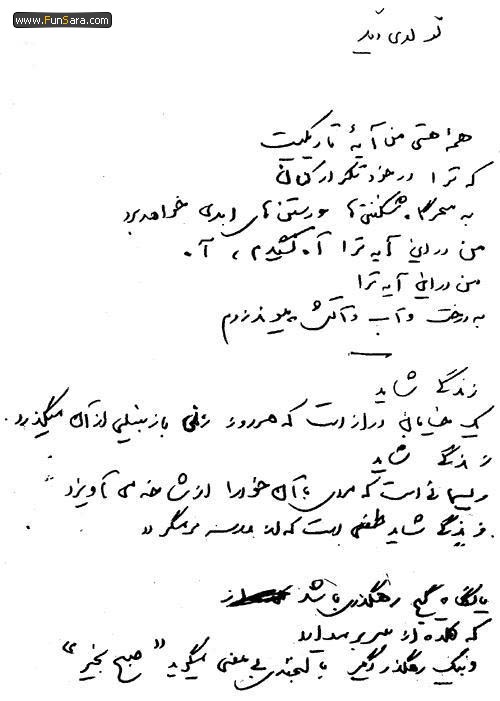 www.FunSara.com
تولدی دیگر
همهٔ هستی من آیهٔ تاریکیست
که ترا در خود تکرار کنان
به سحرگاه شکفتن‌ها و رستن‌های ابدی خواهد برد
من در این آیه ترا آه کشیدم ، آه
من در این آیه ترا
به درخت و آب و آتش پیوند زدم
زندگی شاید
یک خیابان دراز است که هر روز زنی با زنبیلی از آن میگذرد.
زندگی شاید
ریسمانی است که مردی با آن خود را از شاخه می آویزد
زندگی شاید طفلی است که از مدرسه برمیگردد
یا نگاه گیج رهگذری باشد
که کلاه از سر برمیدارد
و به یک رهگذر دیگر با لبخندی بی معنی میگوید "صبح بخیر"